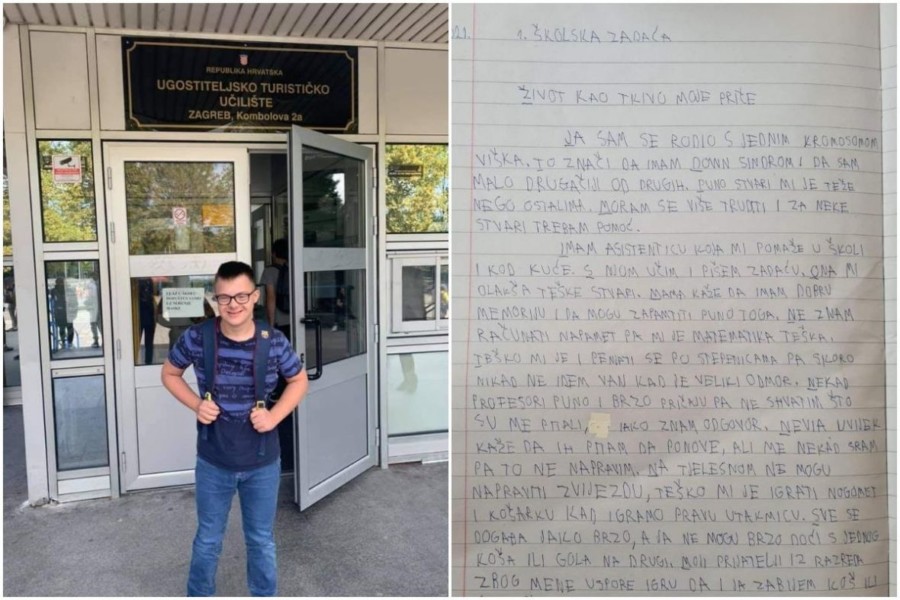 REPUBLIKA HRVATSKA
UGOSTITELJSKO TURISTIČKO
UČILIŠTE
ZAGREB, Kombolova 2a
1. ŠKOLSKA ZADAĆA
ŽIVOT KAO TKIVO MOJE PRIČE
JA SAM SE RODIO S JEDNIM KROMOSOMOM
VIŠKA. TO ZNAČI DA IMAM DOWN SINDROM I DA SAM
MALO DRUGAČIJI OD DRUGIH. PUNO STVARI MI JE TEŽE
NEGO OSTALIMA. MORAM SE VIŠE TRUDITI I ZA NEKE
STVARI TREBAM POMOĆ.
IMAM ASISTENTICU KOJA MI POMAŽE U ŠKOLI
I KOD KUĆE. S NJOM UČIM I PIŠEM ZADAĆU. ONA MI
OLAKŠA TEŠKE STVARI. MAMA KAŽE DA IMAM DOBRU
MEMORIJU I DA MOGU ZAPAMTITI PUNO TOGA. NE ZNAM
RAČUNATI NAPAMET PA MI JE MATEMATIKA TEŠKA.
TEŠKO MI JE I PENJATI SE PO STEPENICAMA PA SKORO
NIKAD NE IDEM VAN KAD JE VELIKI ODMOR. NEKAD
PROFESORI PUNO I BRZO PRIČAJU PA NE SHVATIM ŠTO
SU ME PITALI, IAKO ZNAM ODGOVOR. NEVIA UVIJEK
KAŽE DA IH PITAM DA PONOVE, ALI ME NEKAD SRAM
PA TO NE NAPRAVIM. NA TJELESNOM NE MOGU
NAPRAVITI ZVIJEZDU, TEŠKO MI JE IGRATI NOGOMET
I KOŠARKU KAD IGRAMO PRAVU UTAKMICU. SVE SE
DOGAĐA JAKO BRZO, A JA NE MOGU BRZO DOĆI S JEDNOG
KOŠA ILI GOLA NA DRUGI. MOJI PRIJATELJI IZ RAZREDA
ZBOG MENE USPORE IGRU DA I JA ZABIJEM KOŠ ILI